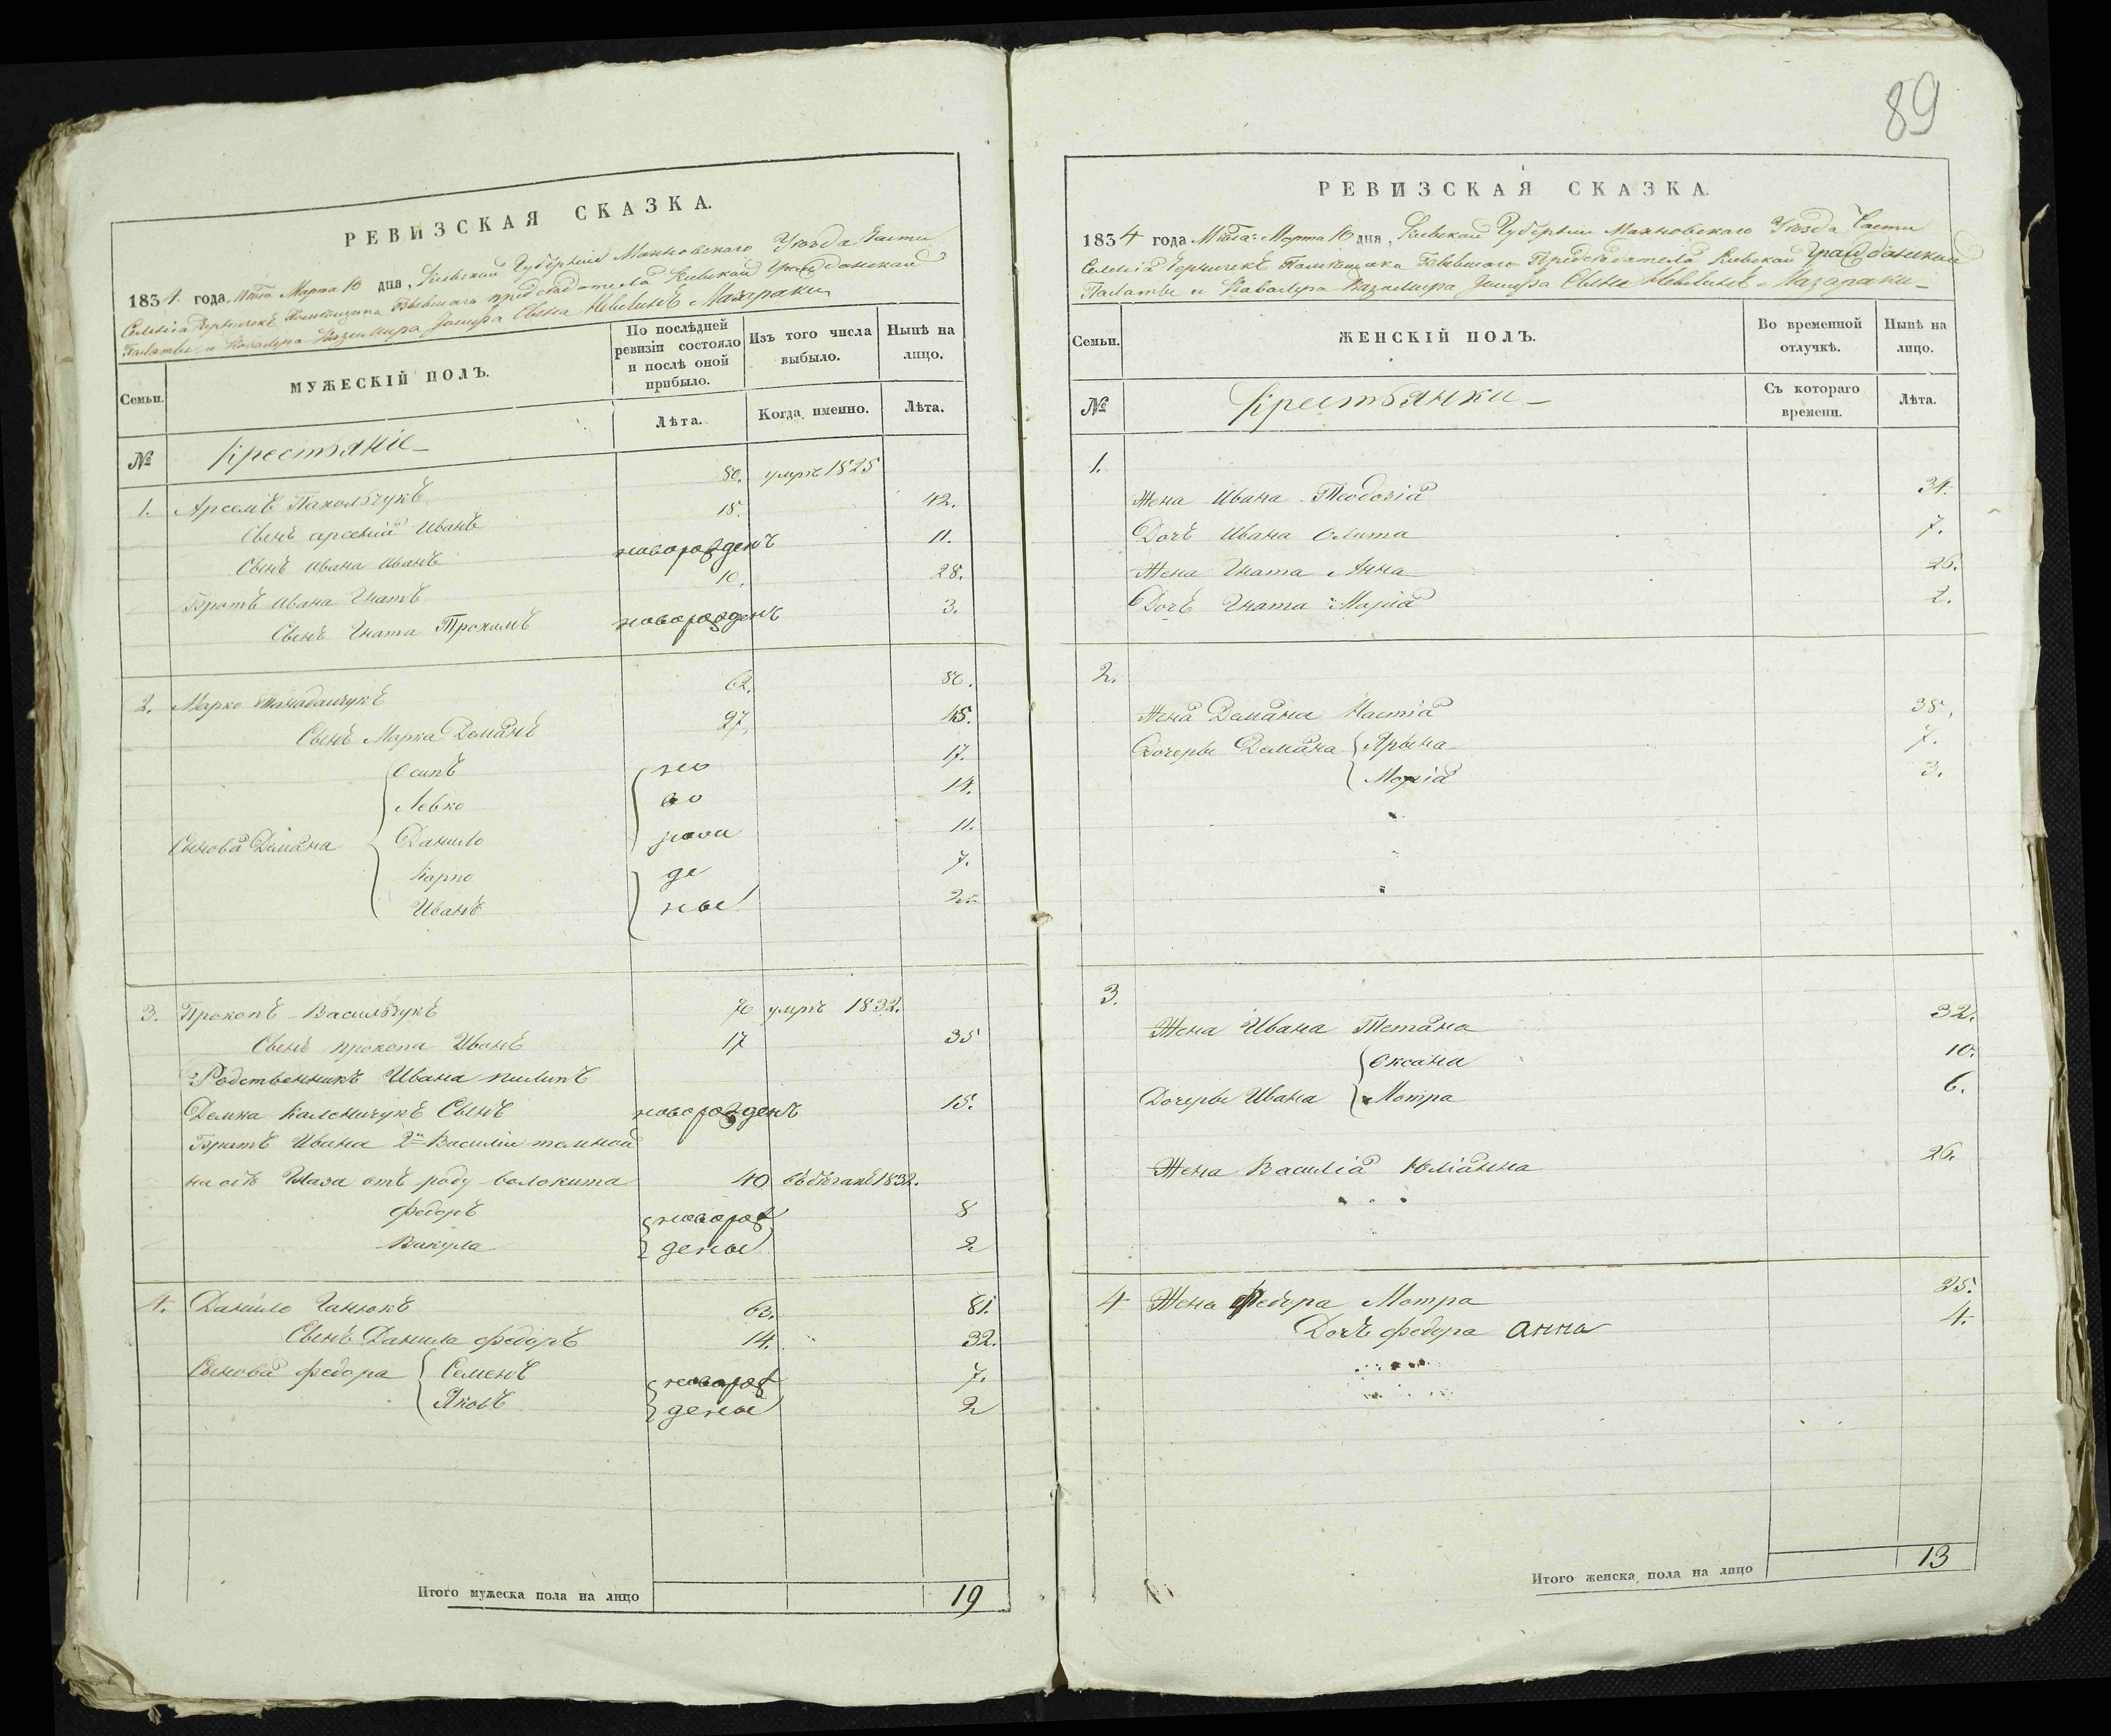 РЕВИЗСКАЯ СКАЗКА.
1834. года Мѣца Марта 10 дня, Кіевской Губерніи Махновского Уѣзда Части
Селенія Помѣщика Бывшаго предсѣдателя Кіевской Гражданской
Палаты и Кавалера Казимира Сына Мазараки
Семьи.
МУЖЕСКІЙ ПОЛЪ.
По послѣдней ревизіи состояло и послѣ оной прибыло.
Изъ того числа выбыло.
Нынѣ на лицо.
№
Крестяніе
Лѣта.
Когда именно.
Лѣта.
1. Арсемъ 80. умръ 1825
Сынъ арсенія Иванъ 18. 42.
Сынъ Ивана Иванъ новорожденъ 11.
Братъ Ивана Гнатъ 10. 28.
Сынъ Гната Трохимъ новорожденъ 3.
2. Марко 62. 80.
Сынъ Марка Деміанъ 27. 45.
Осипъ но 17.
Левко во 14.
Сыновя Деміана Данило рож 11.
Карпо де 7.
Иванъ ные 2.
3. Прокопъ Васильчукъ 70 умръ 1832.
Сынъ прокопа Иванъ 17 35
Родственникъ Ивана пилипъ
Демка Каленичукъ Сынъ новорожденъ 15.
Братъ Ивана 2й Василій темной
на обѣ Глаза отъ роду волокита 40 1832.
Федоръ новорож 8
Вакула деные 2
4. Данило Ганюкъ 63. 81.
Сынъ Данила Федоръ 14. 32.
Сыновя Федора Семенъ новорож 7.
Яковъ деные 2
Итого мужеска пола на лицо 19
89
РЕВИЗСКАЯ СКАЗКА.
1834 года Мѣца Марта 10 дня, Кіевской Губерніи Махновского Уѣзда Части
Селенія Помѣщика Бывшаго Предсѣдателя Кіевской Гражданской
Палаты и Кавалера Казимира Сына Мазараки
Семьи.
ЖЕНСКІЙ ПОЛЪ.
Во временной отлучкѣ.
Нынѣ на лицо.
№
Крестьянки
Съ котораго времени.
Лѣта.
1.
Жена Ивана Теодозія 34.
Дочъ Ивана Олита 7.
Жена Гната Анна 26.
Дочъ Гната Марія 2.
2.
Жена Деміана Настія 38.
Дочеры Деміана Ярына 7.
Марія 3.
3.
Жена Ивана Тетіана 32.
Оксана 10.
Дочеры Ивана Мотра 6.
Жена Василія Юліанна 26.
4 Жена Федора Мотра 25.
Дочъ Федора Анна 4.
Итого женска пола на лицо 13